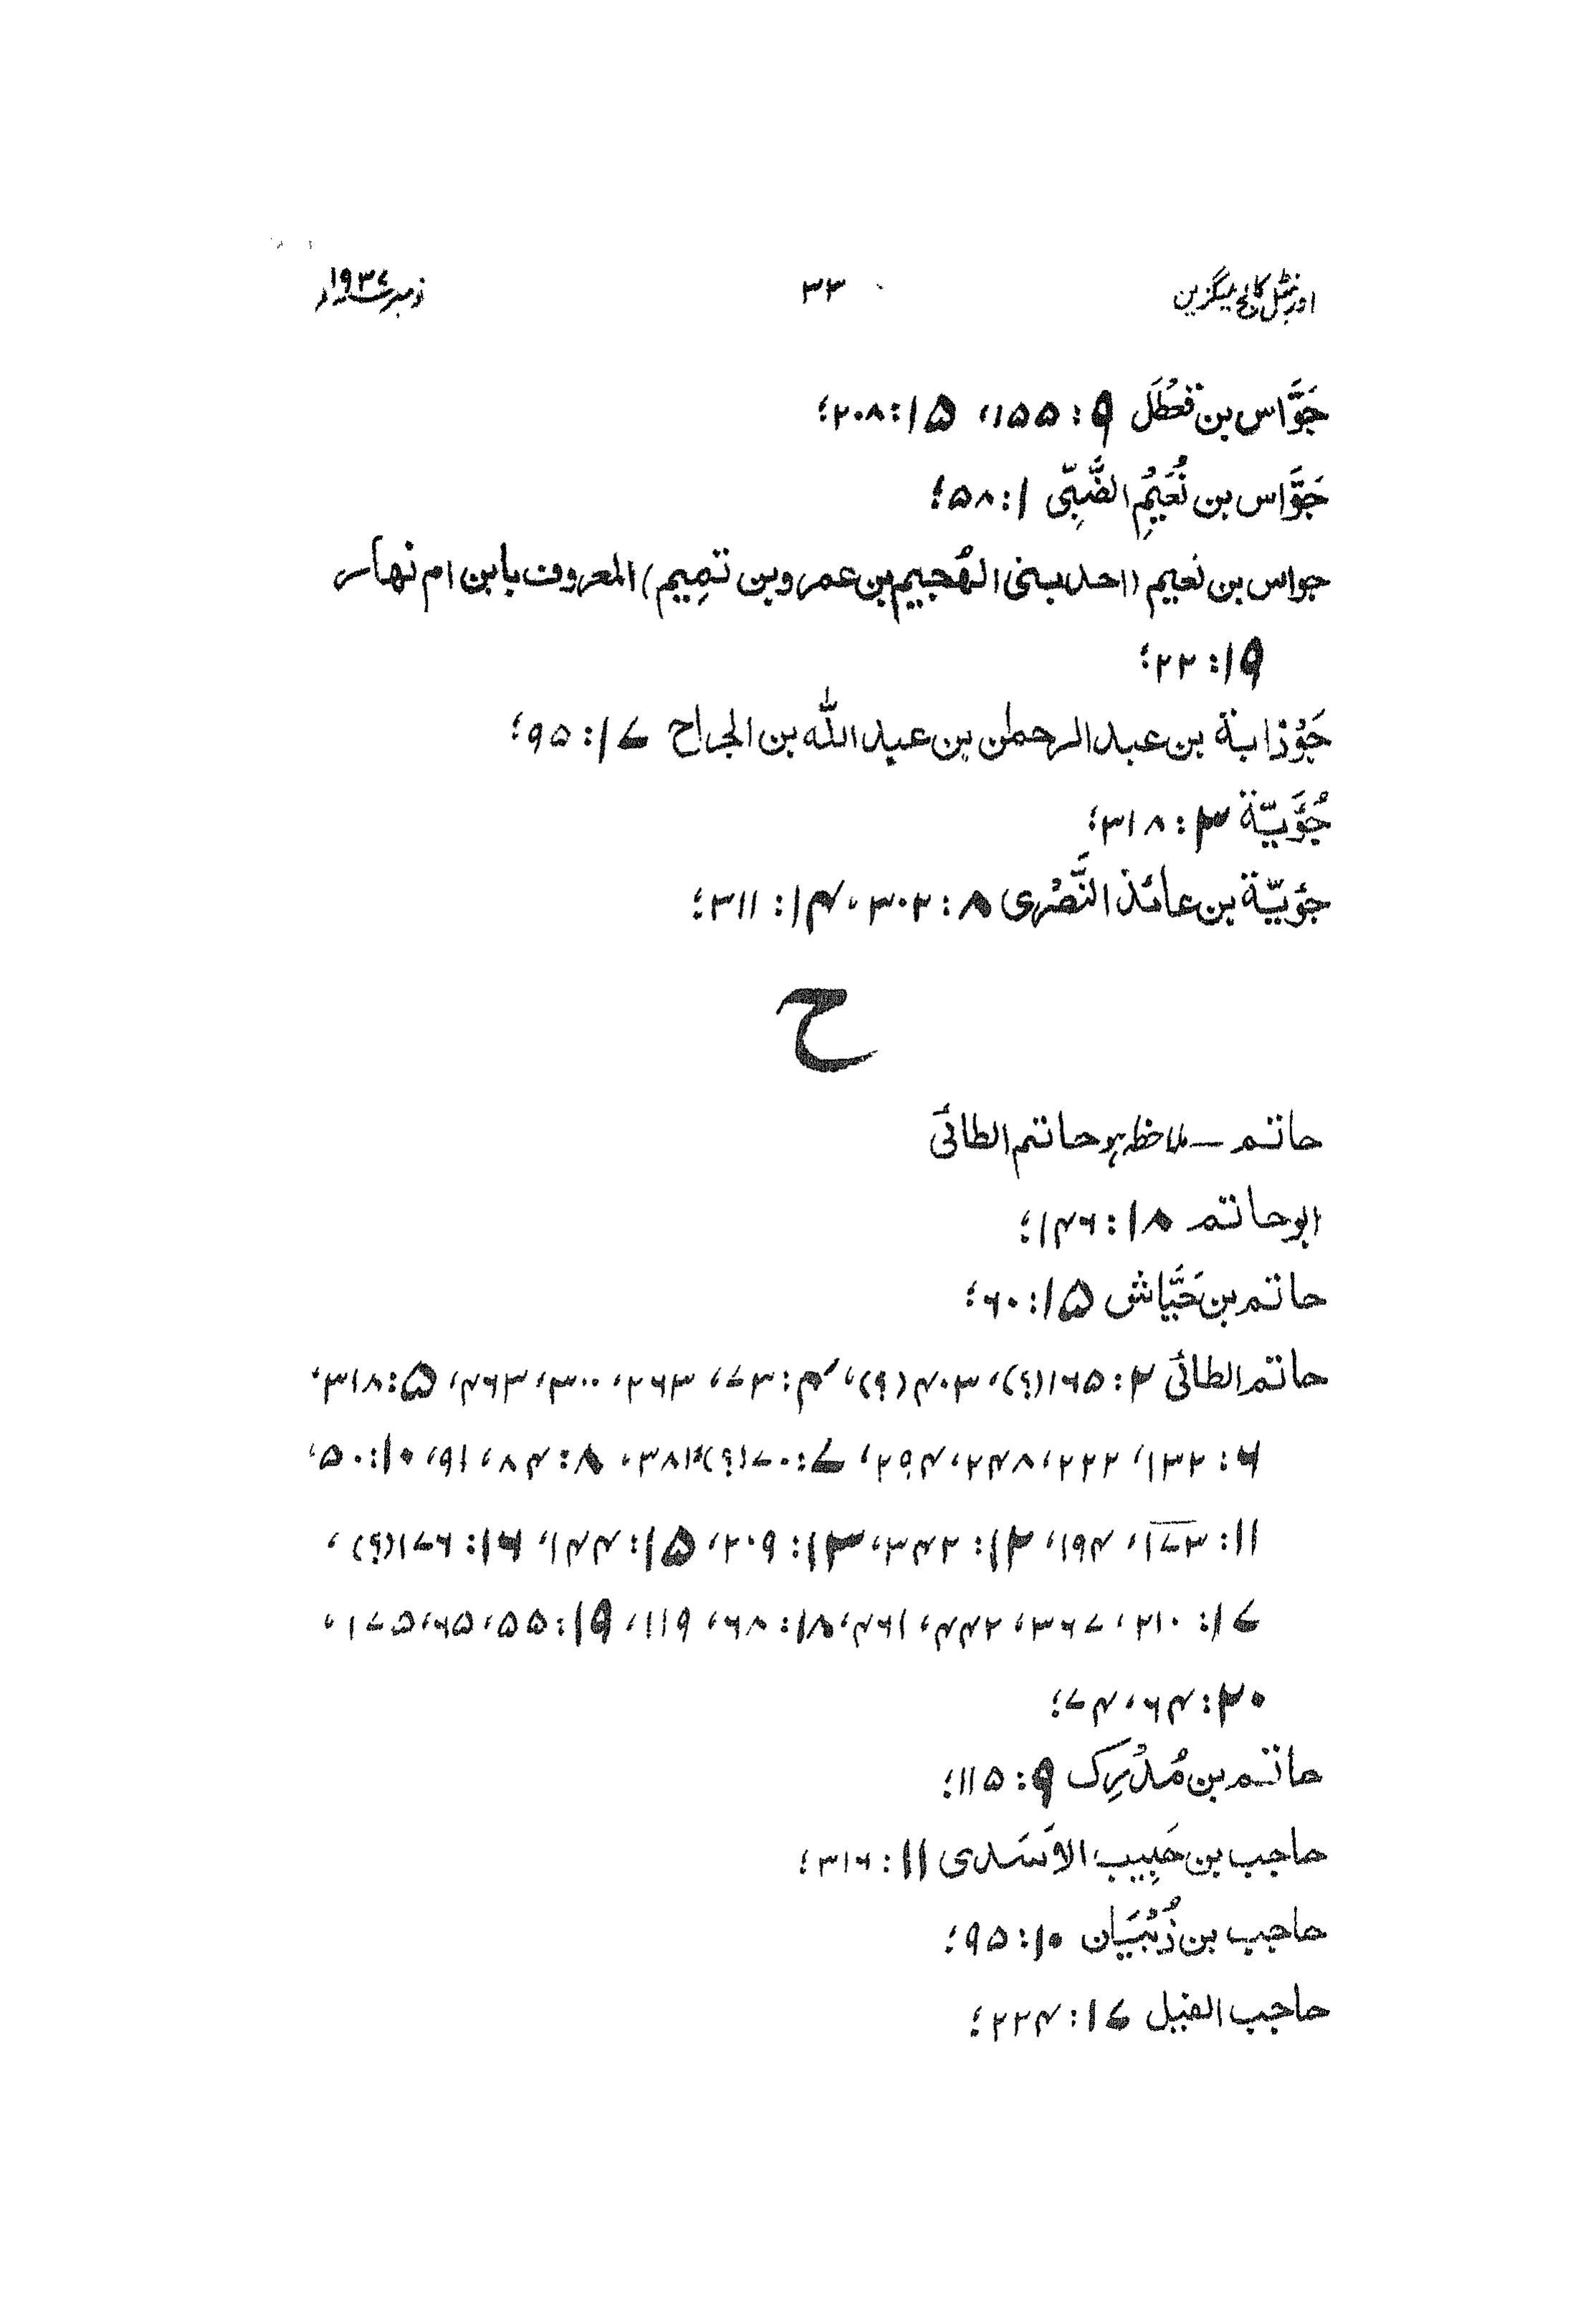 اورنٹیل کالج میگزین ۳۳ نومبر ۱۹۳۷ء
جَوَّاس بن قَعْطَل ۹: ۱۵۵، ۱۵: ۲۰۸؛
جَوَّاس بن نُعَيْمِ الضَّبِّی ۱: ۵۸؛
جواس بن نعیم (احد بنی الهُجیم بن عمرو بن تمِیم) المعروف بابن ام نهار
۱۹: ۲۲؛
جَوْذابة بن عبد الرحمٰن بن عبد اللّٰه بن الجراح ۱۷: ۹۵؛
جُؤَيّة ۳: ۳۱۸؛
جؤیّة بن عائذ النَّصْری ۸: ۳۰۲، ۱۴: ۳۱۱؛
ح
حاتم — ملاحظہ ہو حاتم الطائی
ابو حاتم ۱۸: ۱۴۶؛
حاتم بن حَيَّاش ۱۵: ۶۰؛
حاتم الطائی ۲: ۱۶۵(؟)، ۴۰۳(؟)، ۴: ۷۳، ۲۶۳، ۳۰۰، ۴۶۳، ۵: ۳۱۸،
۶: ۱۳۲، ۲۲۲، ۲۴۸، ۲۹۴، ۷: ۱۷۰(؟)، ۳۸۱، ۸: ۸۴، ۹۱، ۱۰: ۵۰،
۱۱: ۱۷۳، ۱۹۴، ۱۲: ۳۴۲، ۱۳: ۲۰۹، ۱۵: ۱۴۴، ۱۶: ۱۷۶(؟)،
۱۷: ۲۱۰، ۳۶۷، ۲۴۴، ۴۶۱، ۱۸: ۶۸، ۱۱۹، ۱۹: ۵۵، ۶۵، ۱۷۵،
۲۰: ۶۴، ۷۴؛
حاتم بن مُدْرِک ۹: ۱۱۵؛
حاجب بن حَبِیب الاَسَدی ۱۱: ۳۱۶؛
حاجب بن ذُبْیَان ۱۰: ۹۵؛
حاجب الفیل ۱۷: ۲۲۴؛